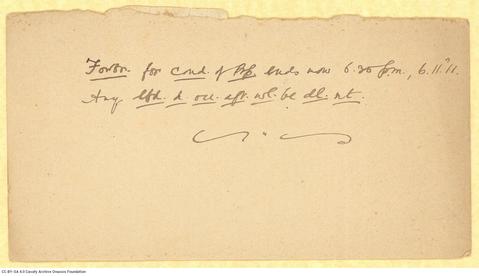 Forbn. for cond. of Pof. ends now 6.20 p.m., 6.11.'11.
Any lfd. d. occ. aft. wl. be dl. nt.
CC-BY-SA 4.0 Cavafy Archive Onassis Foundation